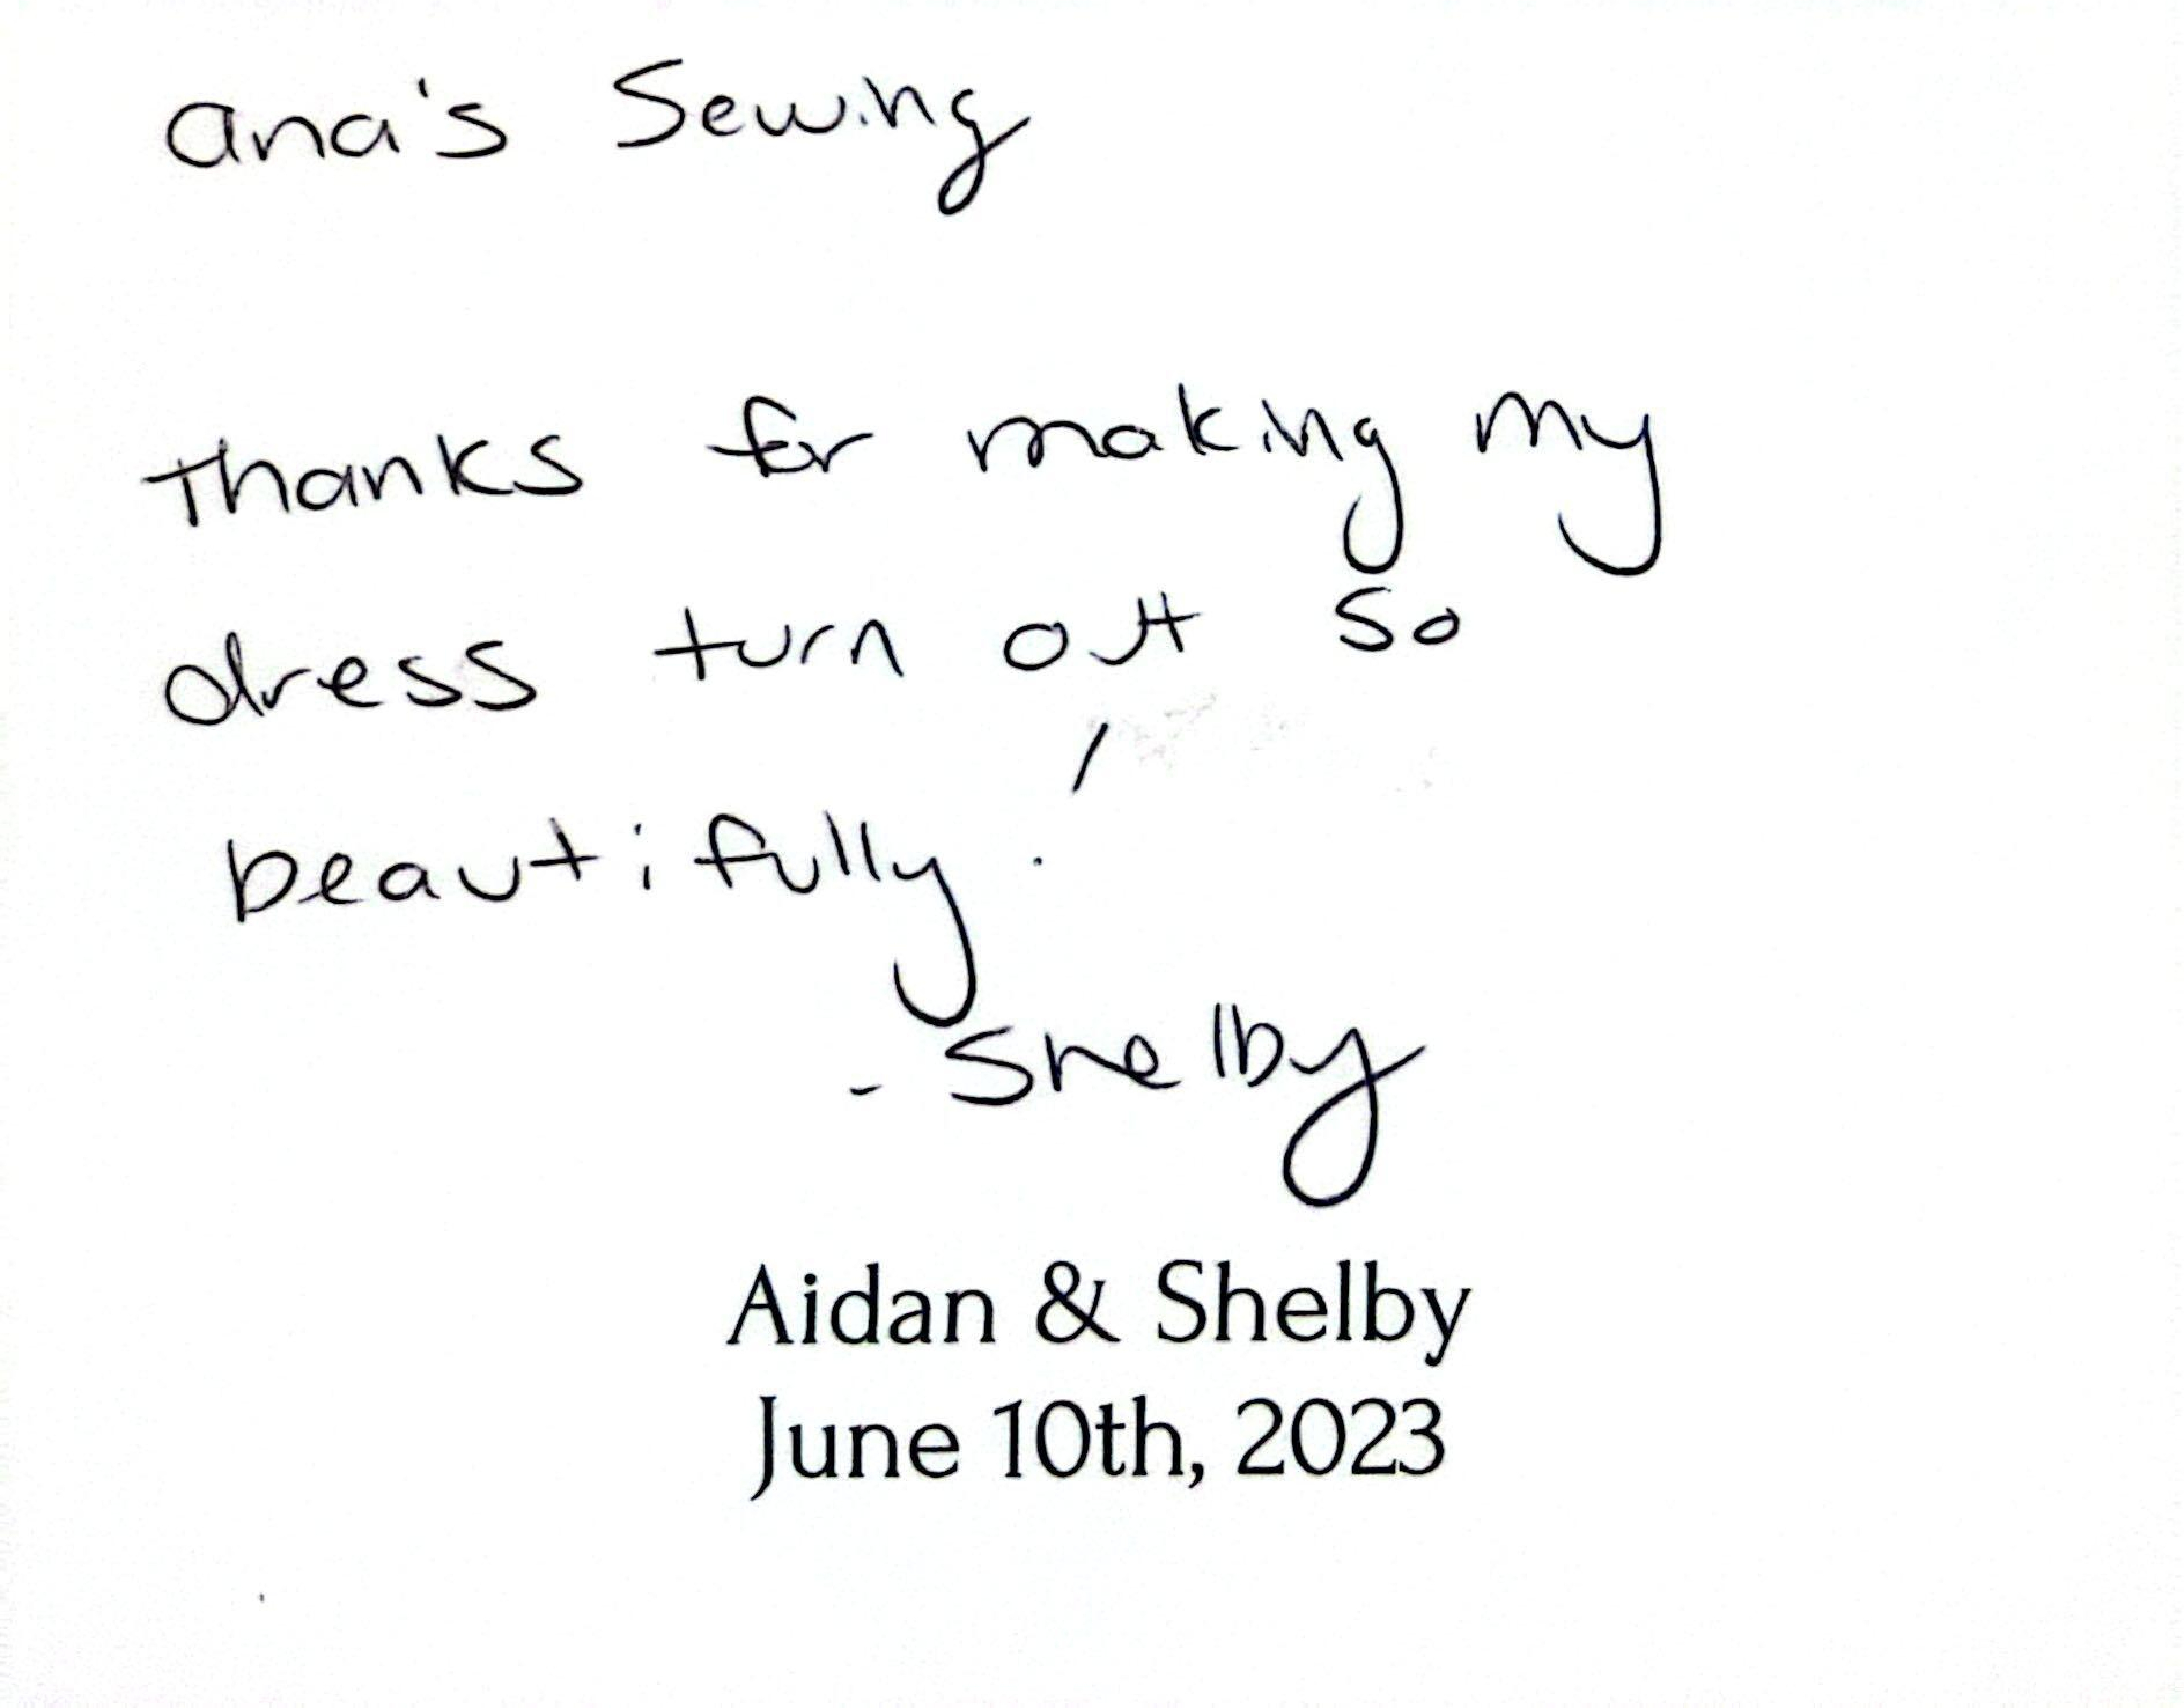 ana's Sewing
Thanks for making my
dress turn out so
beautifully!
- Shelby
Aidan & Shelby
June 10th, 2023